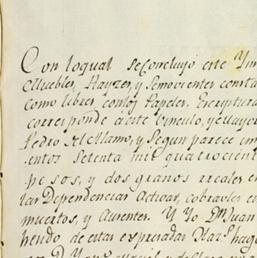 Con loqual se Concluyó este Yn
Muebles, Rayzes, y Semovientes consta
como libres con los Papeles, Escriptura
corresponde à este Vinculo, y Mayor
Pedro del Alamo, y Segun parece im
entos Setenta mil quatrocient
pesos, y dos granos reales en
las Dependencias Activas, cobrables
muertos, y Ausentes. Y Yo Dn Juan
hendo de estas expresadas Haz.s hago